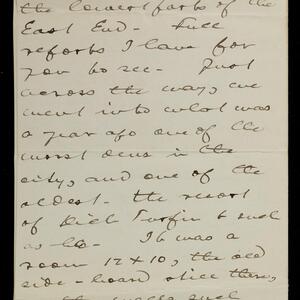 the lowest parts of the
East End. Full
reports I have for
you to see. Just
across the way, we
went into what was
a year ago one of the
worst dens in the
city, and one of the
oldest - the resort
of Dick Turpin & such
as he - It was a
room 12 x 10, the old
side-board still there,
the walls